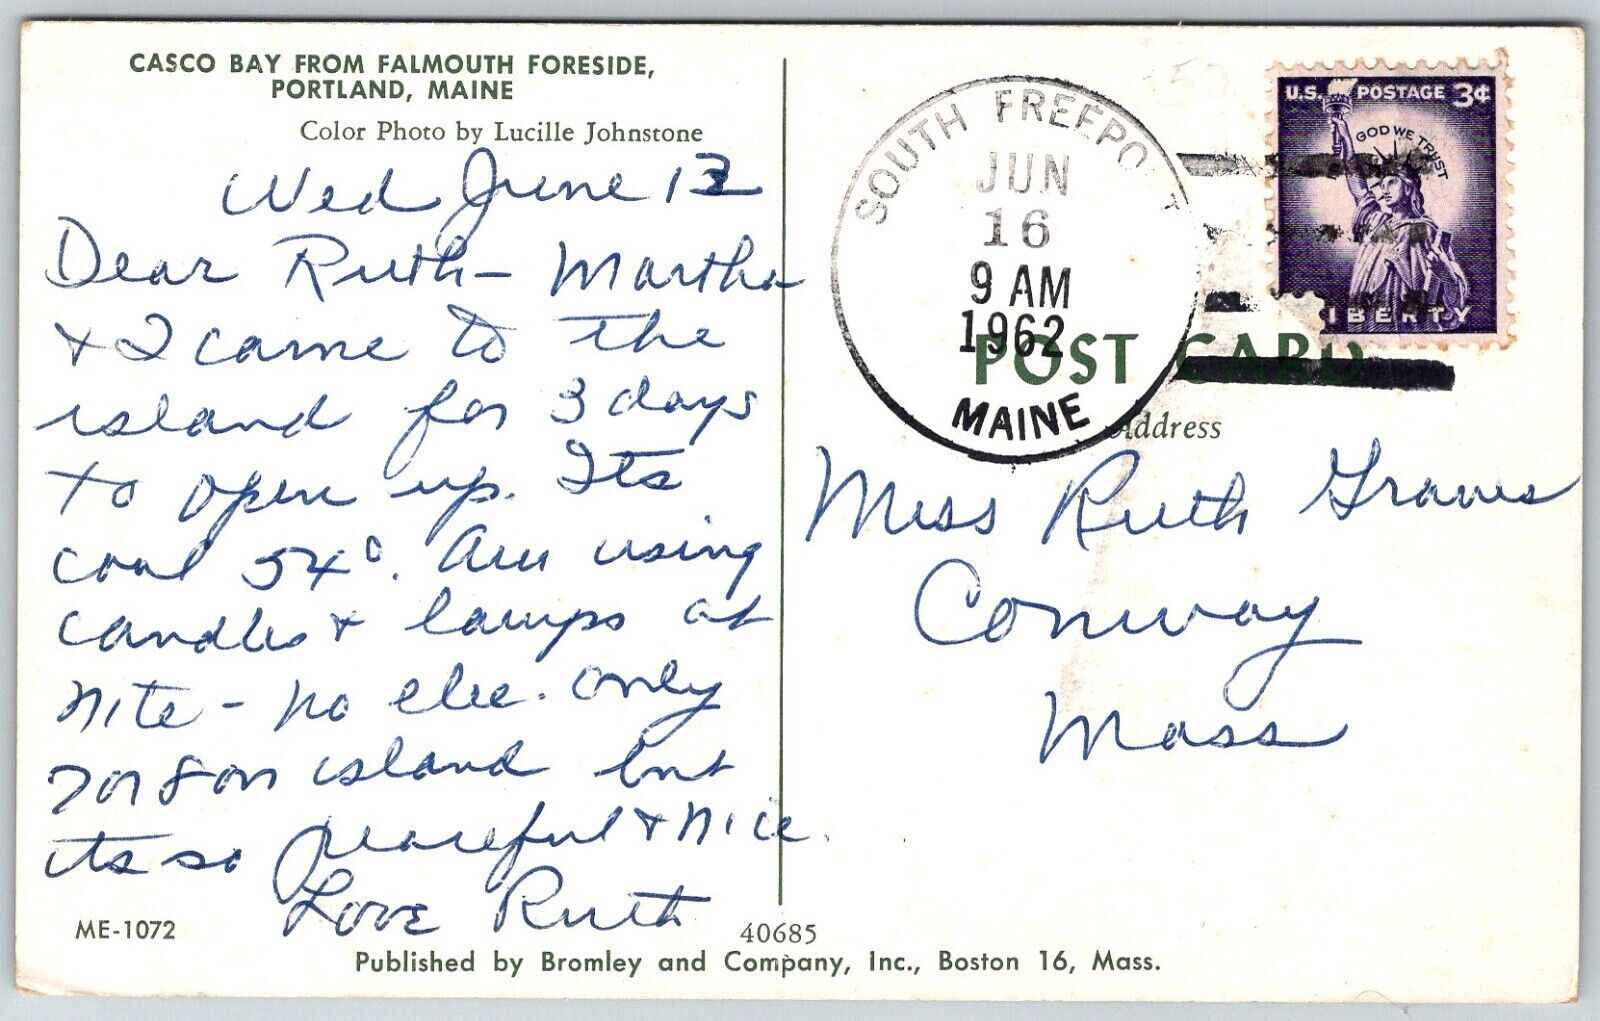 CASCO BAY FROM FALMOUTH FORESIDE,
PORTLAND, MAINE
Color Photo by Lucille Johnstone
Wed June 13
Dear Ruth - Martha
& I came to the
island for 3 days
to open up. Its
cool 54°. Am using
candles & lamps at
nite - no elec. only
7 or 8 on island but
its so peaceful & nice.
Love Ruth
ME-1072
40685
Published by Bromley and Company, Inc., Boston 16, Mass.
SOUTH FREEPORT
JUN
16
9 AM
1962
MAINE
U.S. POSTAGE 3¢
GOD WE TRUST
IBERTY
POST CARD
Address
Miss Ruth Graves
Conway
Mass